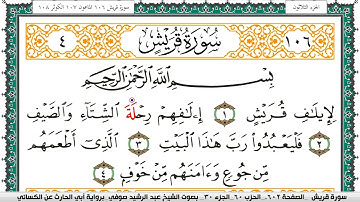 سورة قريش ١٠٦ الماعون ١٠٧ الكوثر ١٠٨
الجزء الثلاثون
١٠٦ سُورَةُ قُرَيْشٍ ٤
بِسْمِ اللَّهِ الرَّحْمَٰنِ الرَّحِيمِ
لِإِيلَٰفِ قُرَيْشٍ ١ إِۦلَٰفِهِمْ رِحْلَةَ الشِّتَآءِ وَالصَّيْفِ
٢ فَلْيَعْبُدُوا۟ رَبَّ هَٰذَا الْبَيْتِ ٣ الَّذِىٓ أَطْعَمَهُم
مِّن جُوعٍ وَءَامَنَهُم مِّنْ خَوْفٍ ٤
سورة قريش .. الصفحة ٦٠٢.. الحزب ٦٠ الجزء ٣٠.. بصوت الشيخ عبد الرشيد صوفي برواية أبي الحارث عن الكسائي